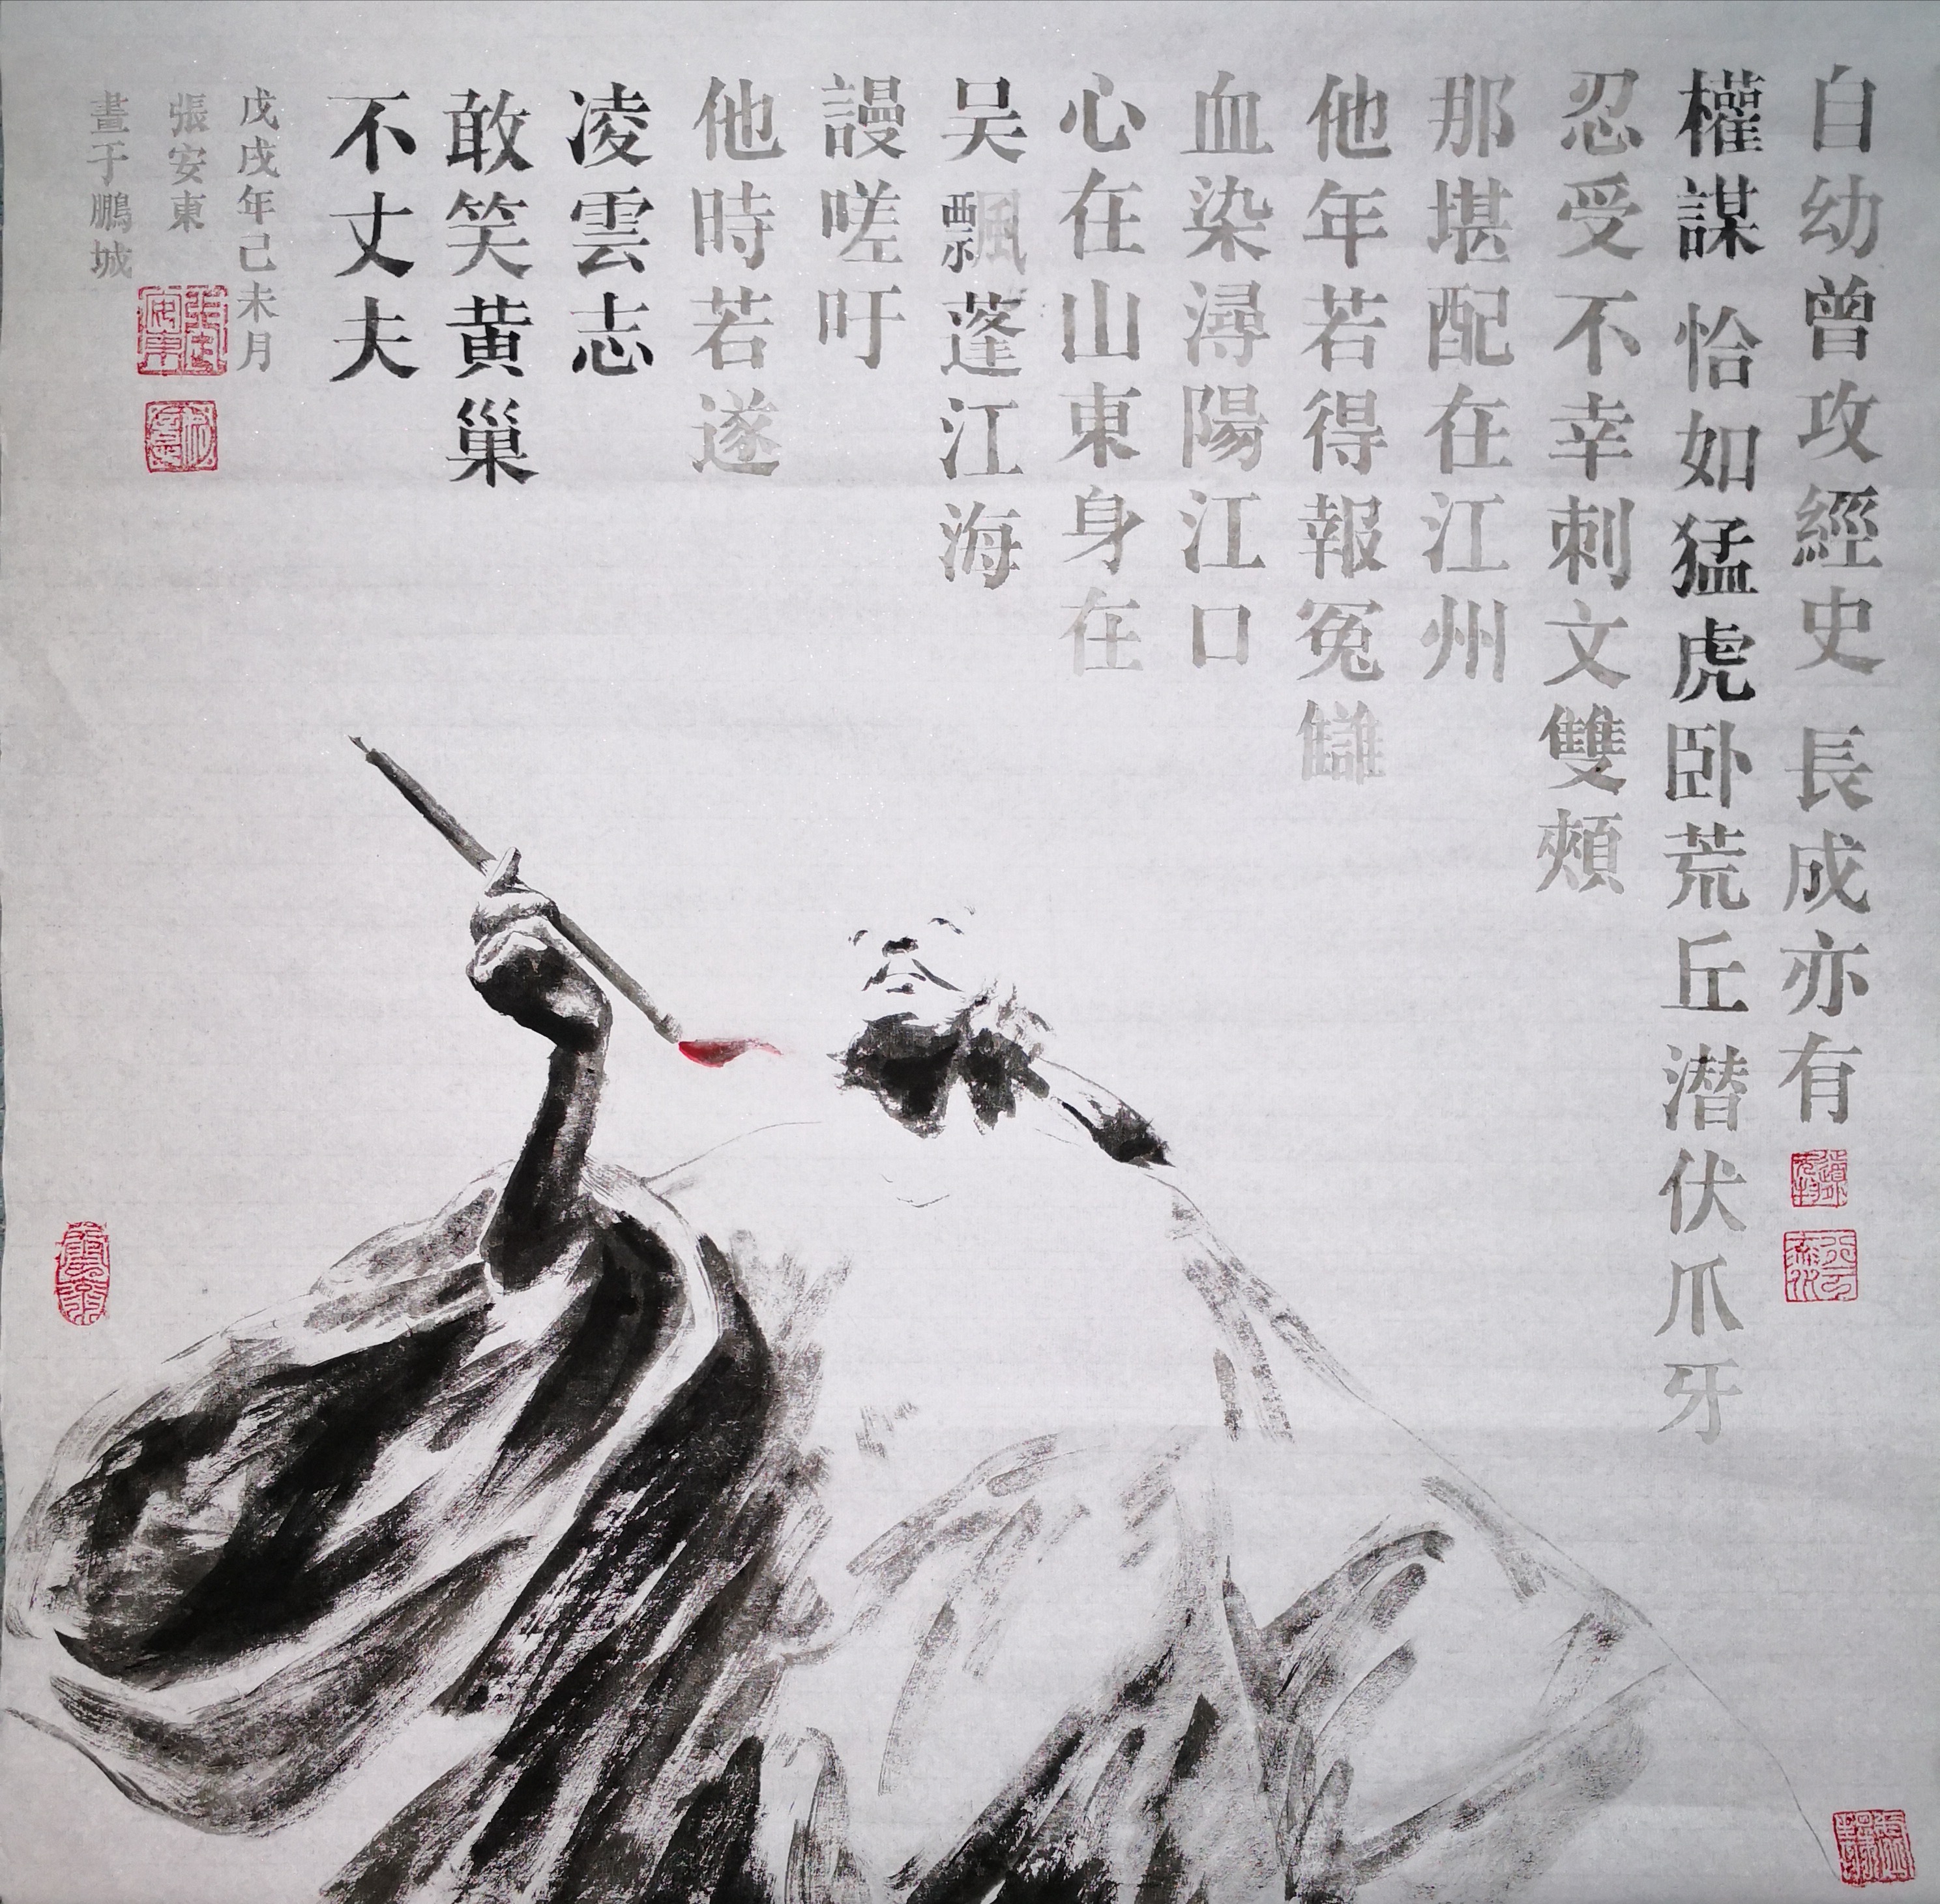 自幼曾攻經史 長成亦有
權謀 恰如猛虎卧荒丘 潜伏爪牙
忍受 不幸刺文雙頰
那堪配在江州
他年若得報冤讎
血染潯陽江口
心在山東身在
吴 飄蓬江海
謾嗟吁
他時若遂
凌雲志
敢笑黄巢
不丈夫
戊戌年己未月
張安東
畫于鵬城